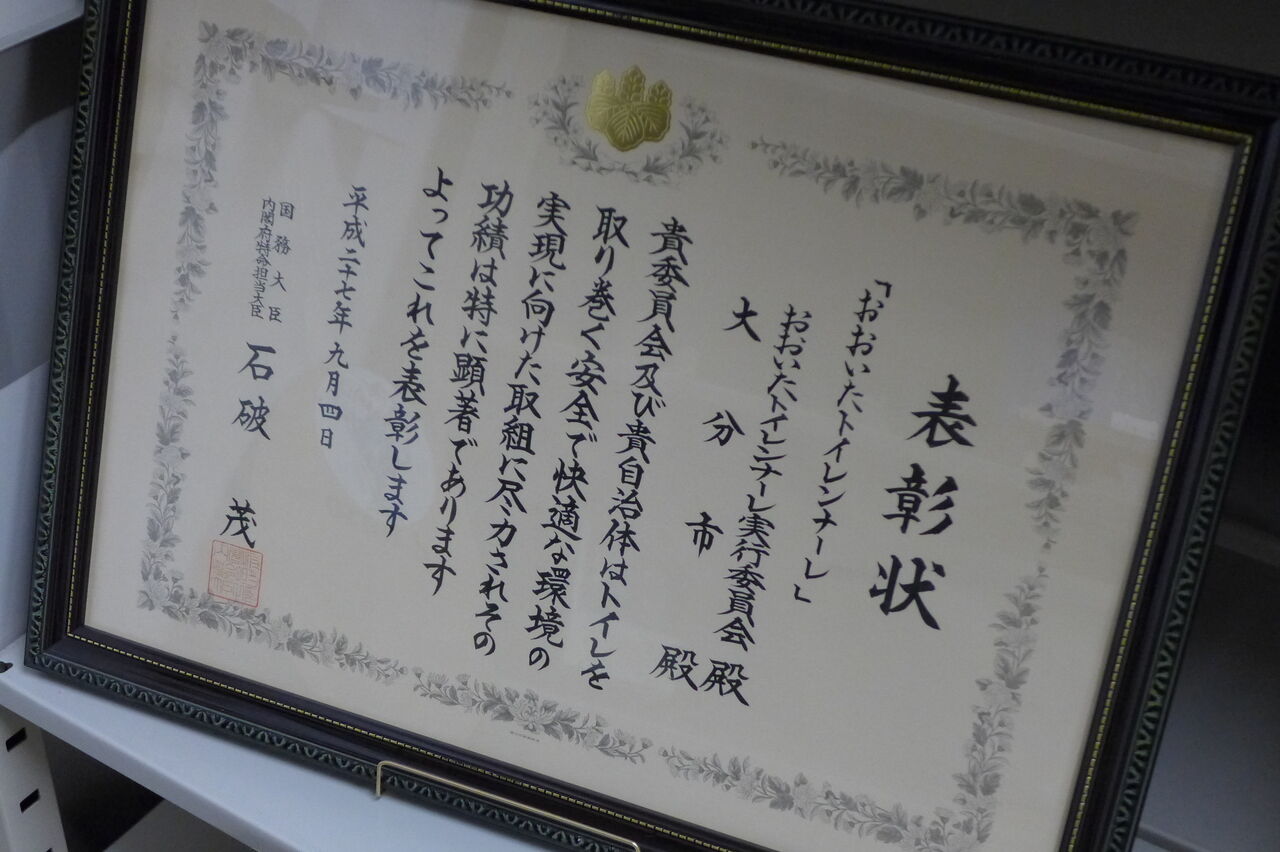 表彰状
「おおいたトイレンナーレ」
おおいたトイレンナーレ実行委員会殿
大分市殿
貴委員会及び貴自治体はトイレを
取り巻く安全で快適な環境の
実現に向けた取組に尽力されその
功績は特に顕著であります
よってこれを表彰します
平成二十七年九月四日
国務大臣
内閣府特命担当大臣
石破茂